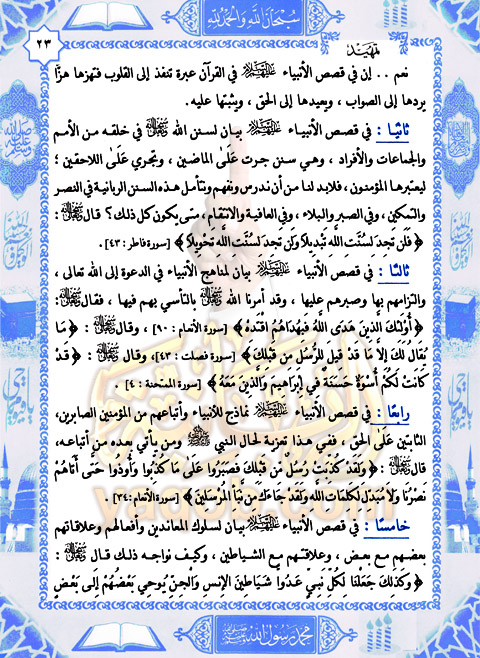 سبحان الله والحمد لله
تمهيد
٢٣
نعم .. إن في قصص الأنبياء عليهم السلام في القرآن عبرة تنفذ إلى القلوب فتهزها هزًّا
يردها إلى الصواب ، ويعيدها إلى الحق ، ويثبتها عليه.
ثانيًا : في قصص الأنبياء عليهم السلام بيان لسنن الله في خلقه من الأمم
والجماعات والأفراد ، وهي سنن جرت عَلَىٰ الماضين ، وتجري عَلَىٰ اللاحقين ؛
ليعتبرها المؤمنون ، فلابد لنا من أن ندرس ونفهم ونتأمل هذه السنن الربانية في النصر
والتمكين ، وفي الصبر والبلاء ، وفي العافية والانتقام ، متى يكون كل ذلك ؟ قال :
﴿ فَلَن تَجِدَ لِسُنَّتِ اللَّهِ تَبْدِيلاً وَلَن تَجِدَ لِسُنَّتِ اللَّهِ تَحْوِيلاً ﴾ [سورة فاطر : ٤٣] .
ثالثًا : في قصص الأنبياء عليهم السلام بيان لمناهج الأنبياء في الدعوة إلى الله تعالى ،
والتزامهم بها وصبرهم عليها ، وقد أمرنا الله بالتأسي بهم فيها ، فقال :
﴿ أُوْلَئِكَ الَّذِينَ هَدَى اللَّهُ فَبِهُدَاهُمُ اقْتَدِهْ ﴾ [سورة الأنعام : ٩٠] ، وقال : ﴿ مَا
يُقَالُ لَكَ إِلَّا مَا قَدْ قِيلَ لِلرُّسُلِ مِن قَبْلِكَ ﴾ [سورة فصلت : ٤٣]، وقال : ﴿ قَدْ
كَانَتْ لَكُمْ أُسْوَةٌ حَسَنَةٌ فِي إِبْرَاهِيمَ وَالَّذِينَ مَعَهُ ﴾ [سورة الممتحنة : ٤] .
رابعًا : في قصص الأنبياء عليهم السلام نماذج للأنبياء وأتباعهم من المؤمنين الصابرين،
الثابتين عَلَىٰ الحق ، ففي هذا تعزية لحال النبي ﷺ ومن يأتي بعده من أتباعه،
قال : ﴿ وَلَقَدْ كُذِّبَتْ رُسُلٌ مِّن قَبْلِكَ فَصَبَرُوا عَلَى مَا كُذِّبُوا وَأُوذُوا حَتَّى أَتَاهُمْ
نَصْرُنَا وَلَا مُبَدِّلَ لِكَلِمَاتِ اللَّهِ وَلَقَدْ جَاءَكَ مِن نَّبَأِ الْمُرْسَلِينَ ﴾ [سورة الأنعام : ٣٤] .
خامسًا : في قصص الأنبياء عليهم السلام بيان لسلوك المعاندين وأفعالهم وعلاقاتهم
بعضهم مع بعض ، وعلاقتهم مع الشياطين ، وكيف نواجه ذلك قال :
﴿ وَكَذَلِكَ جَعَلْنَا لِكُلِّ نَبِيٍّ عَدُوًّا شَيَاطِينَ الْإِنسِ وَالْجِنِّ يُوحِي بَعْضُهُمْ إِلَى بَعْضٍ
محمد رسول الله